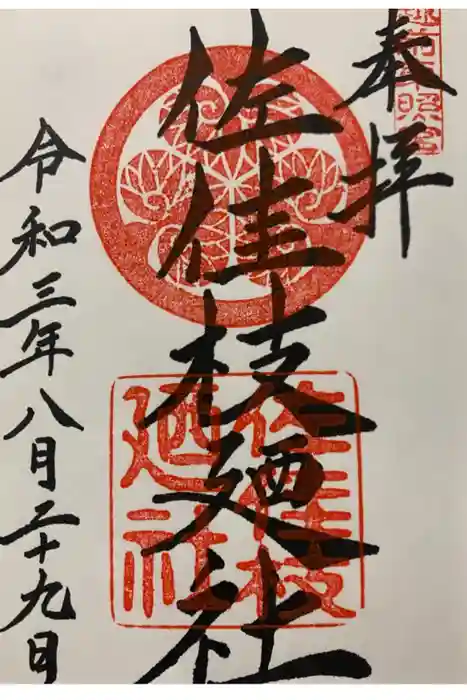 奉拝
佐佳枝廼社
佐佳枝
廼社
令和三年八月二十九日